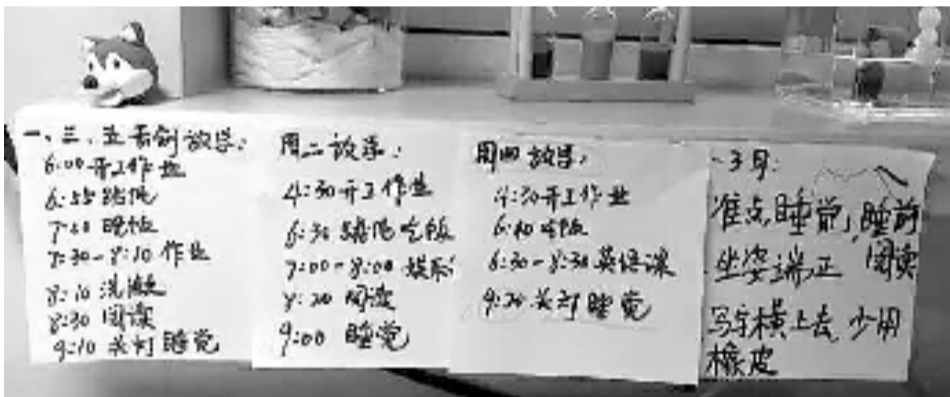 一、三、五看剑放学:
6:00 开工作业
6:55 跳绳
7:10 晚饭
7:30-8:10 作业
8:10 洗漱
8:30 阅读
9:10 关灯睡觉
周二放学:
4:30 开工作业
6:30 跳绳吃饭
7:00-8:00 娱乐
8:20 阅读
9:00 睡觉
周四放学:
4:30 开工作业
6:10 吃饭
6:30-8:30 英语课
9:20 关灯睡觉
3月:
准点睡觉,睡前
坐姿端正 阅读
写字横上去 少用
橡皮